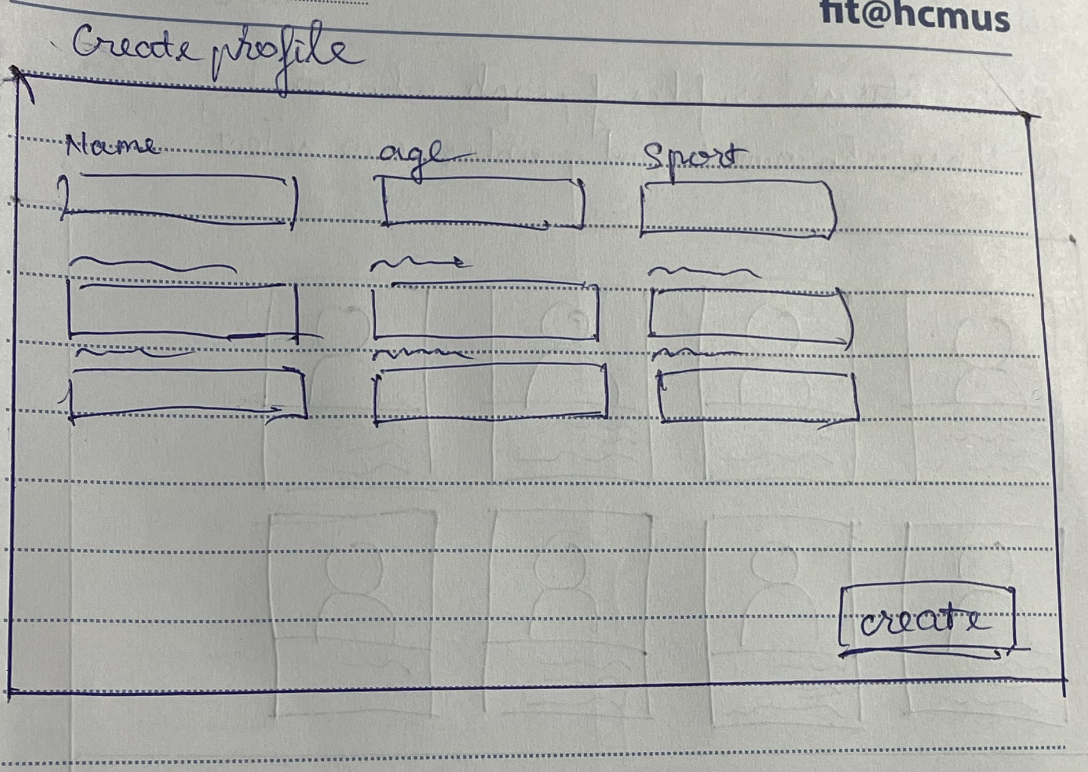 fit@hcmus
Create profile
Name age Sport
create